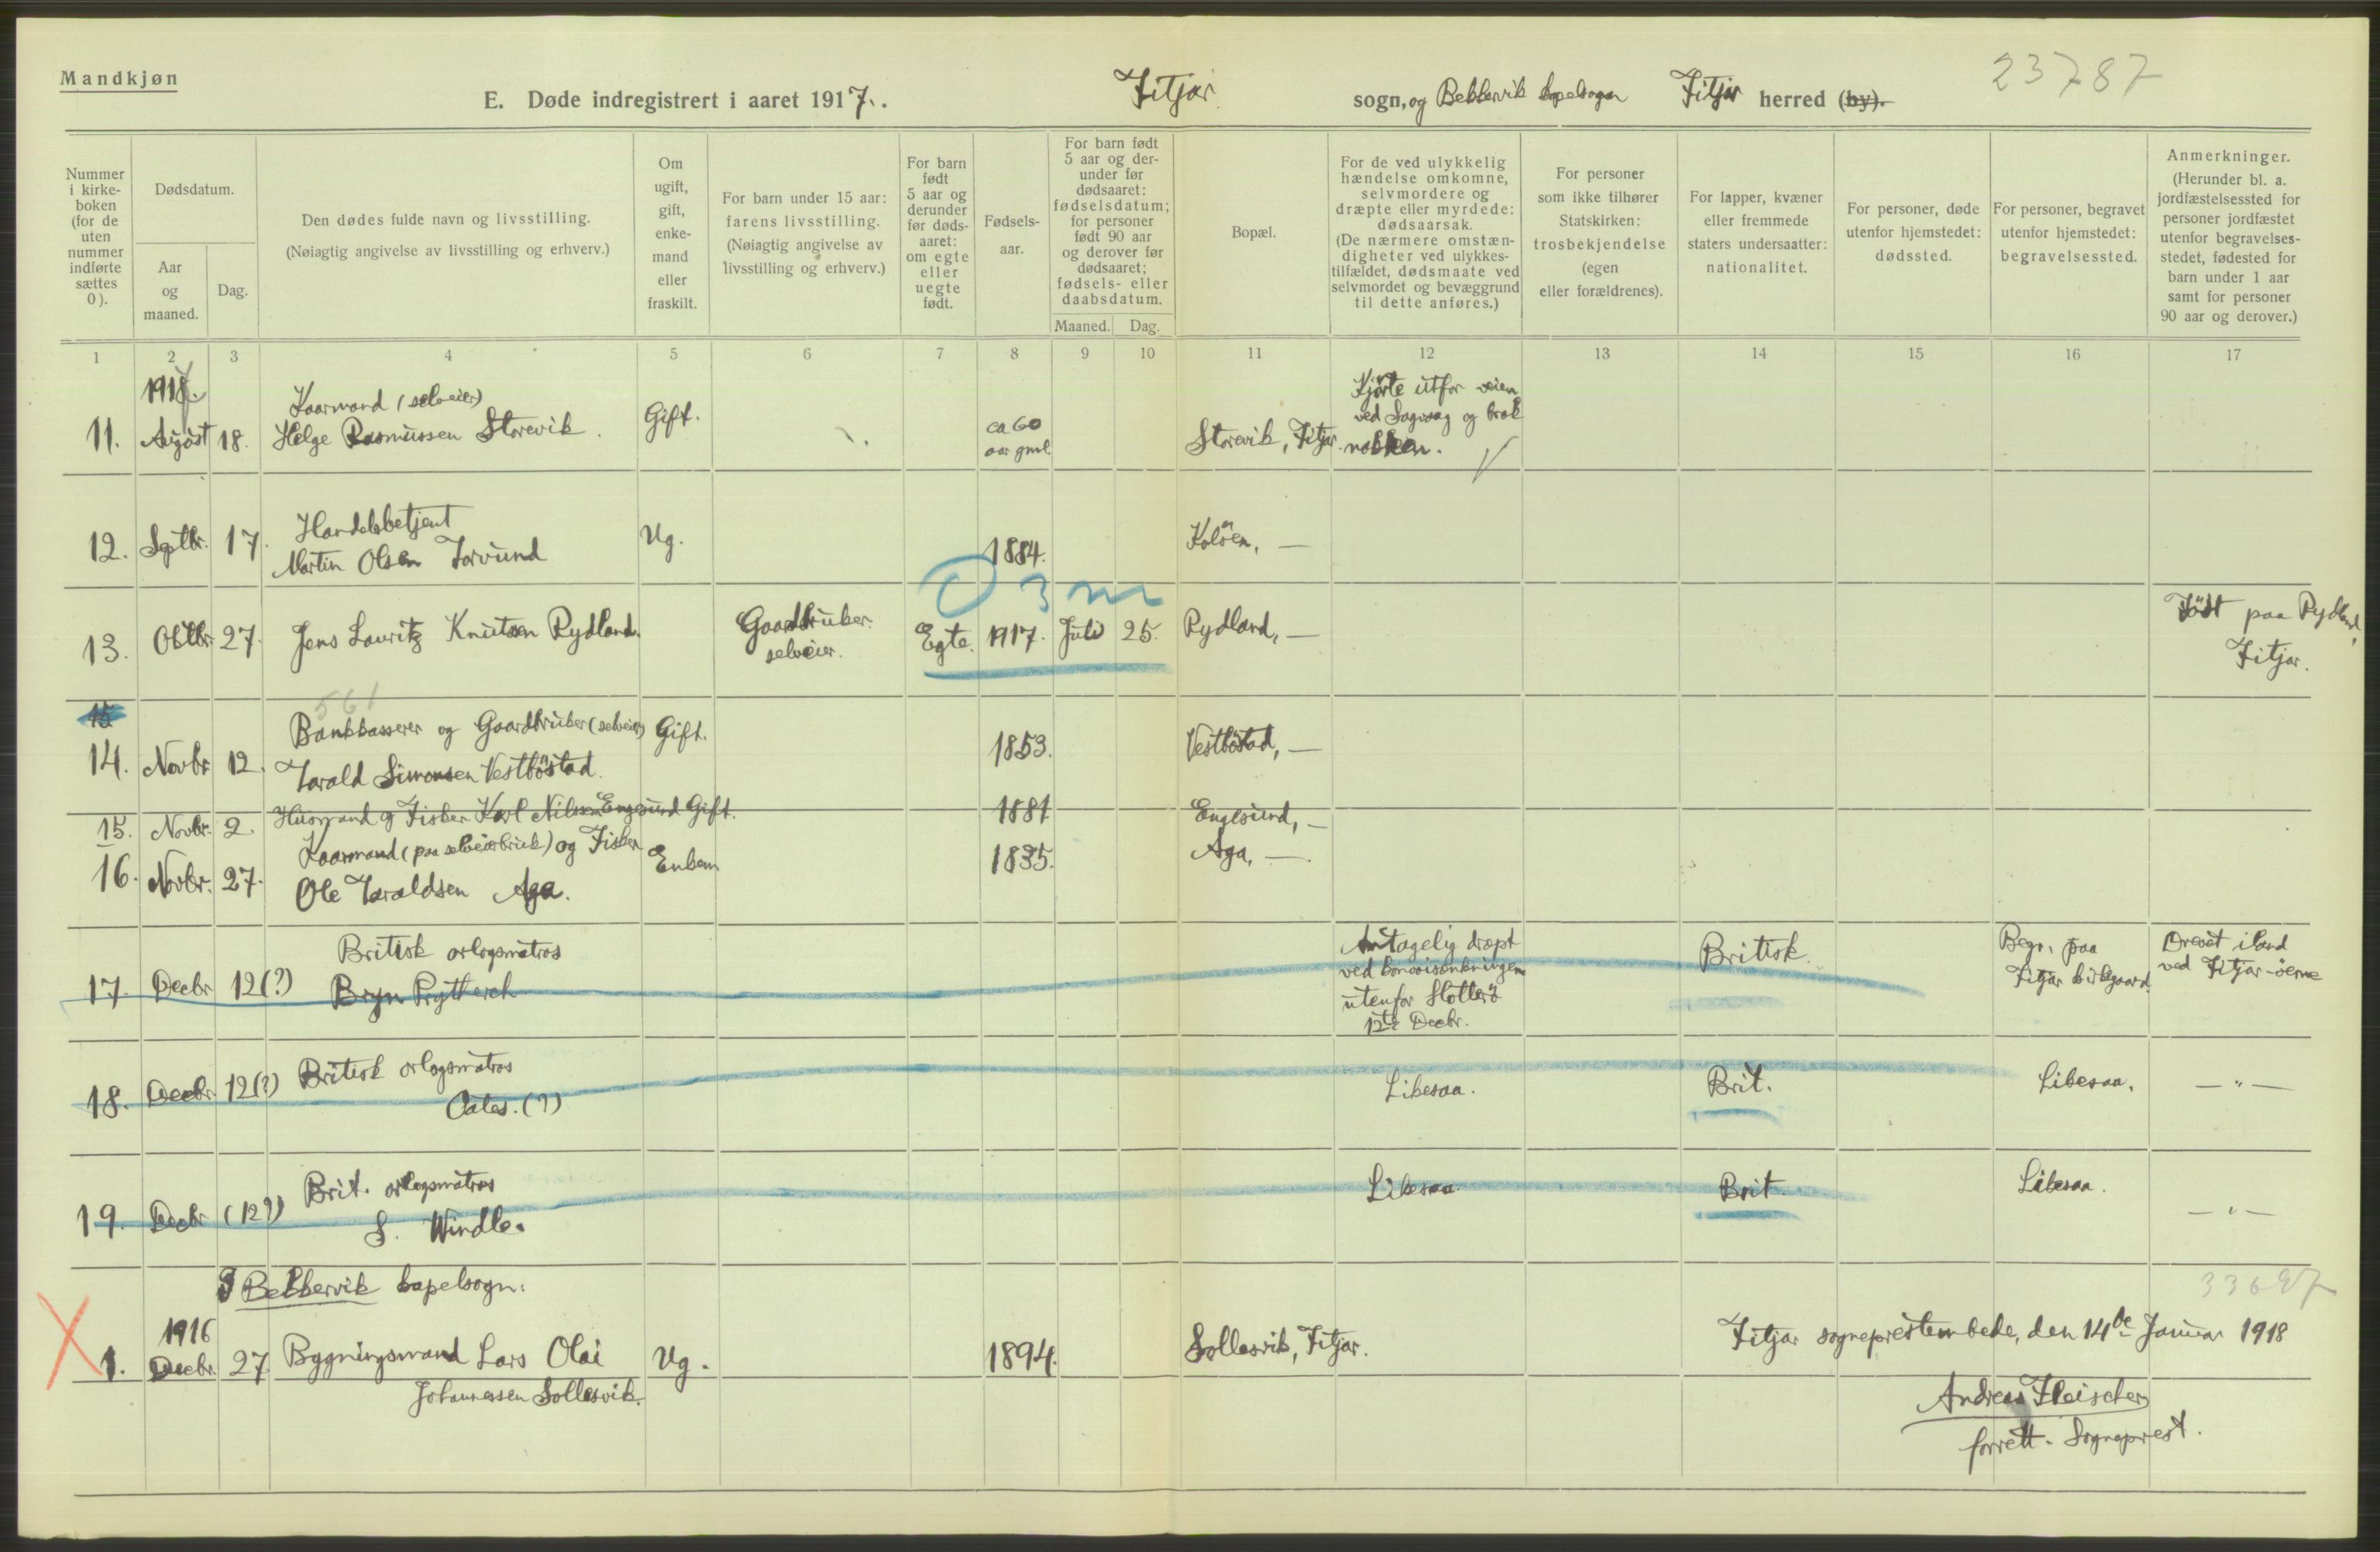 Mandkjøn
E. Døde indregistrert i aaret 1917. Fitjar sogn, og Bekkervik kapelsogn Fitjar herred (by).
23787
Nummer i kirkeboken (for de uten nummer indførte sættes 0).
Dødsdatum.
Aar og maaned.
Dag.
Den dødes fulde navn og livsstilling.
(Nøiagtig angivelse av livsstilling og erhverv.)
Om ugift, gift, enkemand eller fraskilt.
For barn under 15 aar: farens livsstilling.
(Nøiagtig angivelse av livsstilling og erhverv.)
For barn født 5 aar og derunder før dødsaaret: om egte eller uegte født.
Fødselsaar.
For barn født 5 aar og derunder før dødsaaret: fødselsdatum; for personer født 90 aar og derover før dødsaaret; fødsels- eller daabsdatum.
Maaned. Dag.
Bopæl.
For de ved ulykkelig hændelse omkomne, selvmordere og dræpte eller myrdede: dødsaarsak.
(De nærmere omstændigheter ved ulykkestilfældet, dødsmaate ved selvmordet og bevæggrund til dette anføres.)
For personer som ikke tilhører Statskirken: trosbekjendelse (egen eller forældrenes).
For lapper, kvæner eller fremmede staters undersaatter: nationalitet.
For personer, døde utenfor hjemstedet: dødssted.
For personer, begravet utenfor hjemstedet: begravelsessted.
Anmerkninger.
(Herunder bl. a. jordfæstelsessted for personer jordfæstet utenfor begravelsesstedet, fødested for barn under 1 aar samt for personer 90 aar og derover.)
1 2 3 4 5 6 7 8 9 10 11 12 13 14 15 16 17
1917.
11. August 18. Kaarmand (selveier)
Helge Rasmussen Storevik. Gift. ca 60 aar gml. Storevik, Fitjar. Kjørte utfor veien
ved Sagvaag og brak
nakken.
12. Septbr. 17. Handelsbetjent
Martin Olsen Torvund Ug. 1884. Koløen, —
3 m
13. Oktbr. 27. Jens Lauritz Knutsen Rydland. Gaardbruker. selveier. Egte. 1917. Juli 25. Rydland, — Født paa Rydland, Fitjar.
561
15
14. Novbr. 12. Bankkasserer og Gaardbruker (selveier) Gift.
Tarald Simonsen Vestbøstad. 1853. Vestbøstad, —
15. Novbr. 2. Husmand og Fisker Karl Nilssen Engesund Gift. 1881 Engesund, —
16. Novbr. 27. Kaarmand (paa selveierbruk) og Fisker
Ole Taraldsen Aga. Enkem. 1835. Aga, —
17. Decbr. 12(?) Britisk orlogsmatros
Bryn Prytherch Antagelig dræpt
ved konvoisænkningen
utenfor Slotterø
12te Decbr. Britisk. Begr. paa
Fitjar kirkegaard. Drevet iland
ved Fitjar-øerne
18. Decbr. 12(?) Britisk orlogsmatros
Cates. (?) Likesaa. Brit. Likesaa. — " —
19. Decbr (12?) Brit. orlogsmatros
S. Windle. Likesaa. Brit. Likesaa. — " —
I Bekkervik kapelsogn:
33697
1. 1916 Decbr. 27 Bygningsmand Lars Olai
Johannessen Sollesvik. Ug. 1894. Sollesvik, Fitjar.
Fitjar sogneprestembede, den 14de Januar 1918
Andreas Fleischer
forrett. Sogneprest.